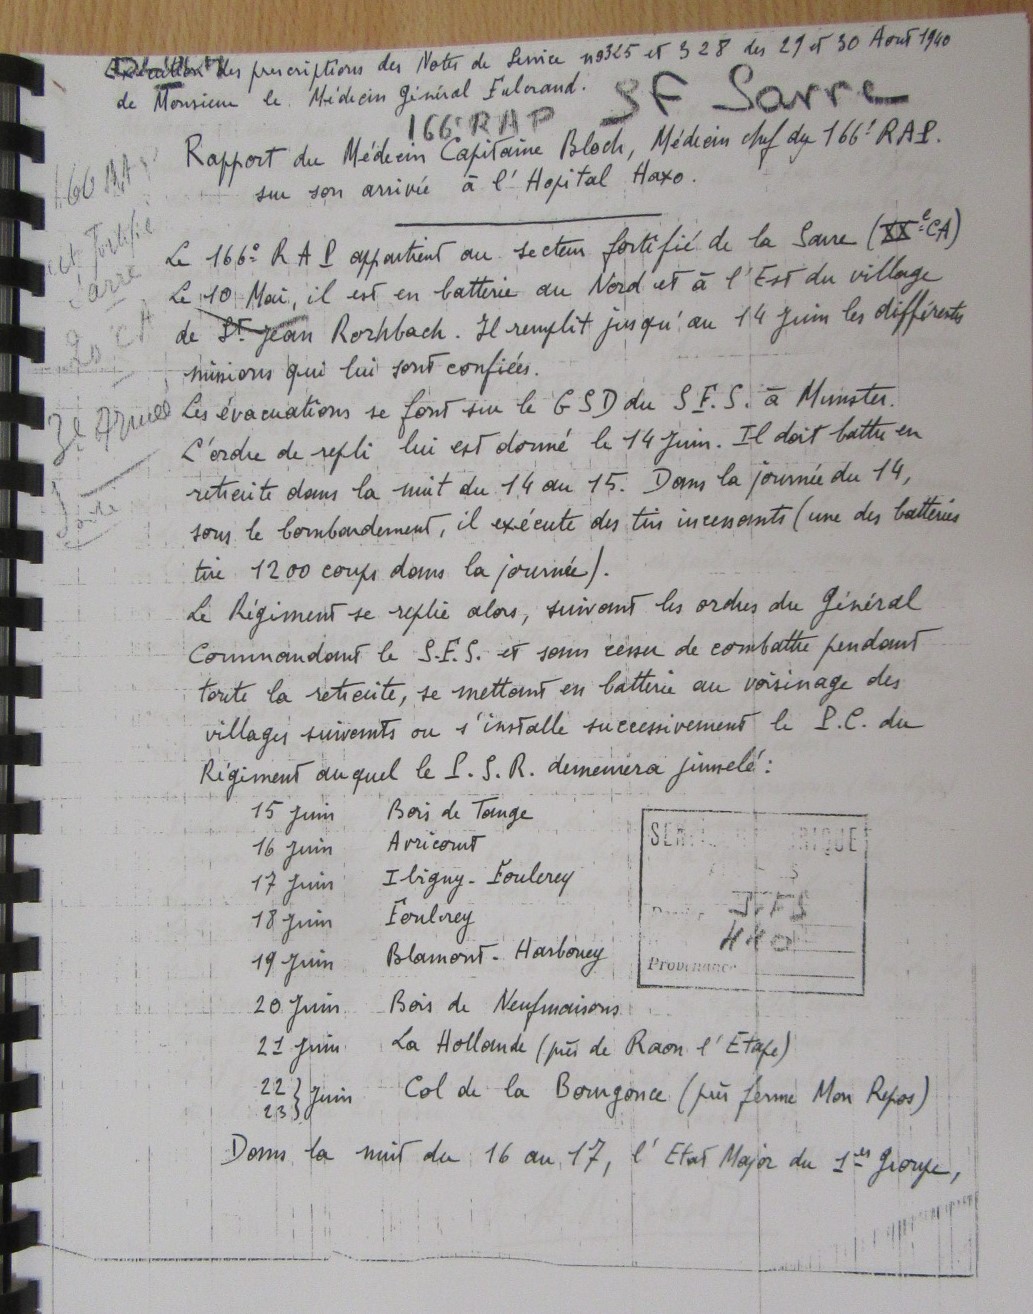 Exécution des prescriptions des Notes de Service nº 325 et 328 des 29 et 30 Août 1940
de Monsieur le Médecin Général Fulcrand.
SF Sarre
166e RAP
Rapport du Médecin Capitaine Bloch, Médecin chef du 166e RAP.
sur son arrivée à l'Hopital Haxo.
166 RAP
fortifié
Sarre
20 CA
3e Armée
Le 166e RAP appartient au secteur fortifié de la Sarre (XXe CA)
Le 10 Mai, il est en batterie au Nord et à l'Est du village
de St Jean Rorhbach. Il remplit jusqu'au 14 Juin les différentes
missions qui lui sont confiées.
Les évacuations se font sur le GSD du S.F.S. à Munster.
L'ordre de repli lui est donné le 14 Juin. Il doit battre en
retraite dans la nuit du 14 au 15. Dans la journée du 14,
sous le bombardement, il exécute des tirs incessants (une des batteries
tire 1200 coups dans la journée).
Le Régiment se replie alors, suivant les ordres du Général
Commandant le S.F.S. et sans cesser de combattre pendant
toute la retraite, se mettant en batterie au voisinage des
villages suivants ou s'installe successivement le P.C. du
Régiment auquel le P.S.R. demeurera jumelé :
15 Juin Bois de Tange
16 Juin Avricourt
17 Juin Ibigny-Foulcrey
18 Juin Foulcrey
19 Juin Blamont-Harbouey
20 Juin Bois de Neufmaisons
21 Juin La Hollande (près de Raon l'Etape)
22 } Juin Col de la Bourgonce (près ferme Mon Repos)
23 }
SER RIQUE
440
Provenance
Dans la nuit du 16 au 17, l'Etat Major du 1er Groupe,